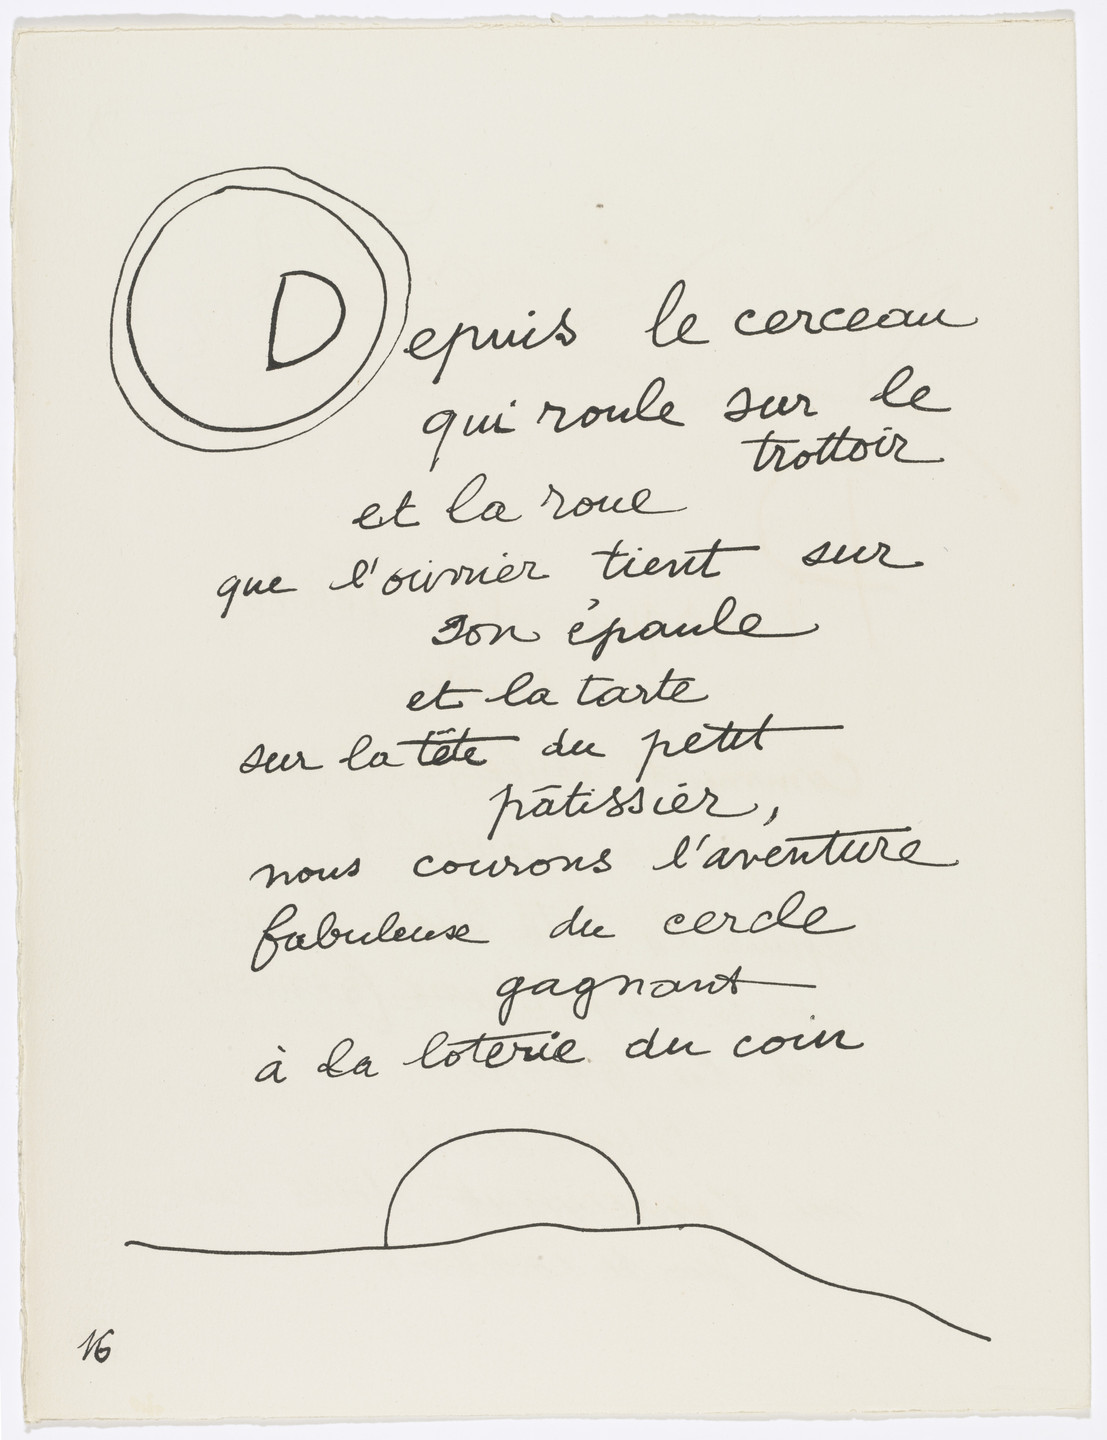 Depuis le cerceau
qui roule sur le
trottoir
et la roue
que l'ouvrier tient sur
son épaule
et la tarte
sur la tête du petit
pâtissier,
nous courons l'aventure
fabuleuse du cercle
gagnant
à la loterie du coin
16